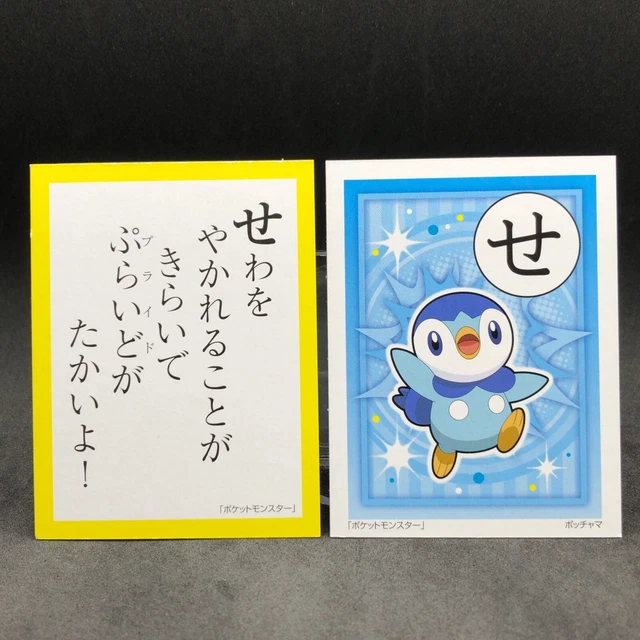 せわを
やかれることが
きらいで
ぷらいどが
プライド
たかいよ!
「ポケットモンスター」
せ
「ポケットモンスター」
ポッチャマ